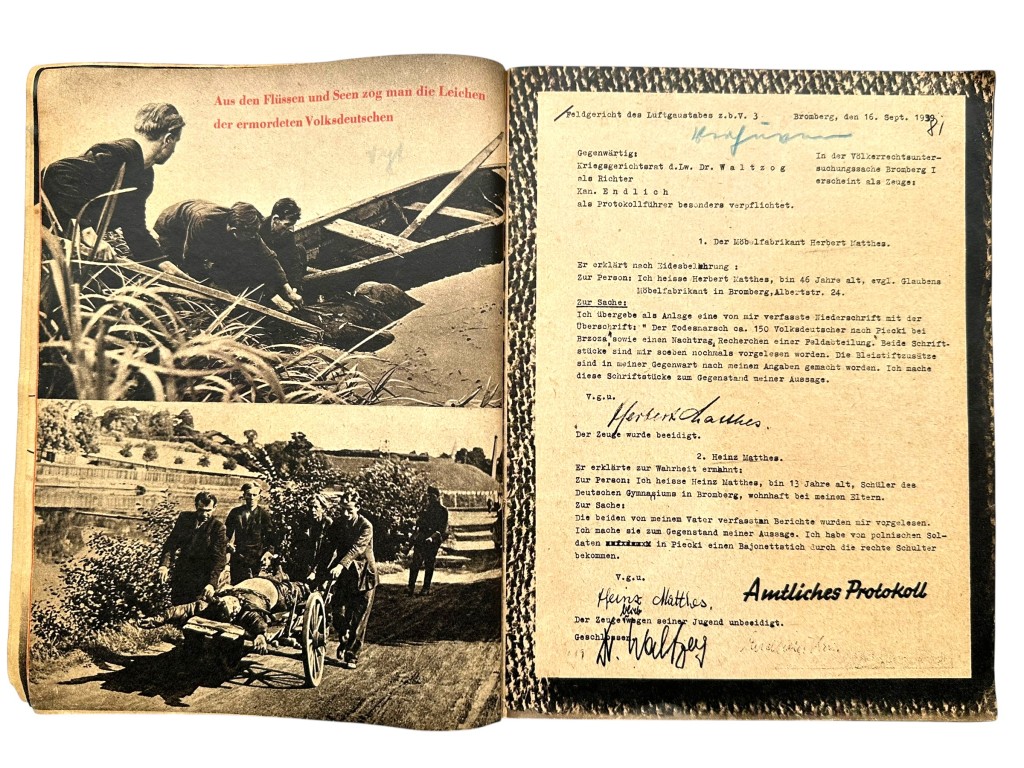 Aus den Flüssen und Seen zog man die Leichen
der ermordeten Volksdeutschen
Feldgericht des Luftgaustabes z.b.V. 3 Bromberg, den 16. Sept. 1939
81
Gegenwärtig:
Kriegsgerichtsrat d.Lw. Dr. Waltzog
als Richter
Kan. Endlich
als Protokollführer besonders verpflichtet.
In der Völkerrechtsunter-
suchungssache Bromberg I
erscheint als Zeuge:
1. Der Möbelfabrikant Herbert Matthes.
Er erklärt nach Eidesbelehrung :
Zur Person: Ich heisse Herbert Matthes, bin 46 Jahre alt, evgl. Glaubens
Möbelfabrikant in Bromberg,Albertstr. 24.
Zur Sache:
Ich übergebe als Anlage eine von mir verfasste Niederschrift mit der
Überschrift: " Der Todesmarsch ca. 150 Volksdeutscher nach Piecki bei
Brzoza" sowie einen Nachtrag, Recherchen einer Feldabteilung. Beide Schrift-
stücke sind mir soeben nochmals vorgelesen worden. Die Bleistiftzusätze
sind in meiner Gegenwart nach meinen Angaben gemacht worden. Ich mache
diese Schriftstücke zum Gegenstand meiner Aussage.
V.g.u.
Herbert Matthes.
Der Zeuge wurde beeidigt.
2. Heinz Matthes.
Er erklärte zur Wahrheit ermahnt:
Zur Person: Ich heisse Heinz Matthes, bin 13 Jahre alt, Schüler des
Deutschen Gymnasiums in Bromberg, wohnhaft bei meinen Eltern.
Zur Sache:
Die beiden von meinem Vater verfassten Berichte wurden mir vorgelesen.
Ich mache sie zum Gegenstand meiner Aussage. Ich habe von polnischen Sol-
daten in Piecki einen Bajonettstich durch die rechte Schulter
bekommen.
V.g.u.
Heinz Matthes.
blieb
Der Zeuge wegen seiner Jugend unbeeidigt.
Geschlossen
Dr. Waltzog
Amtliches Protokoll